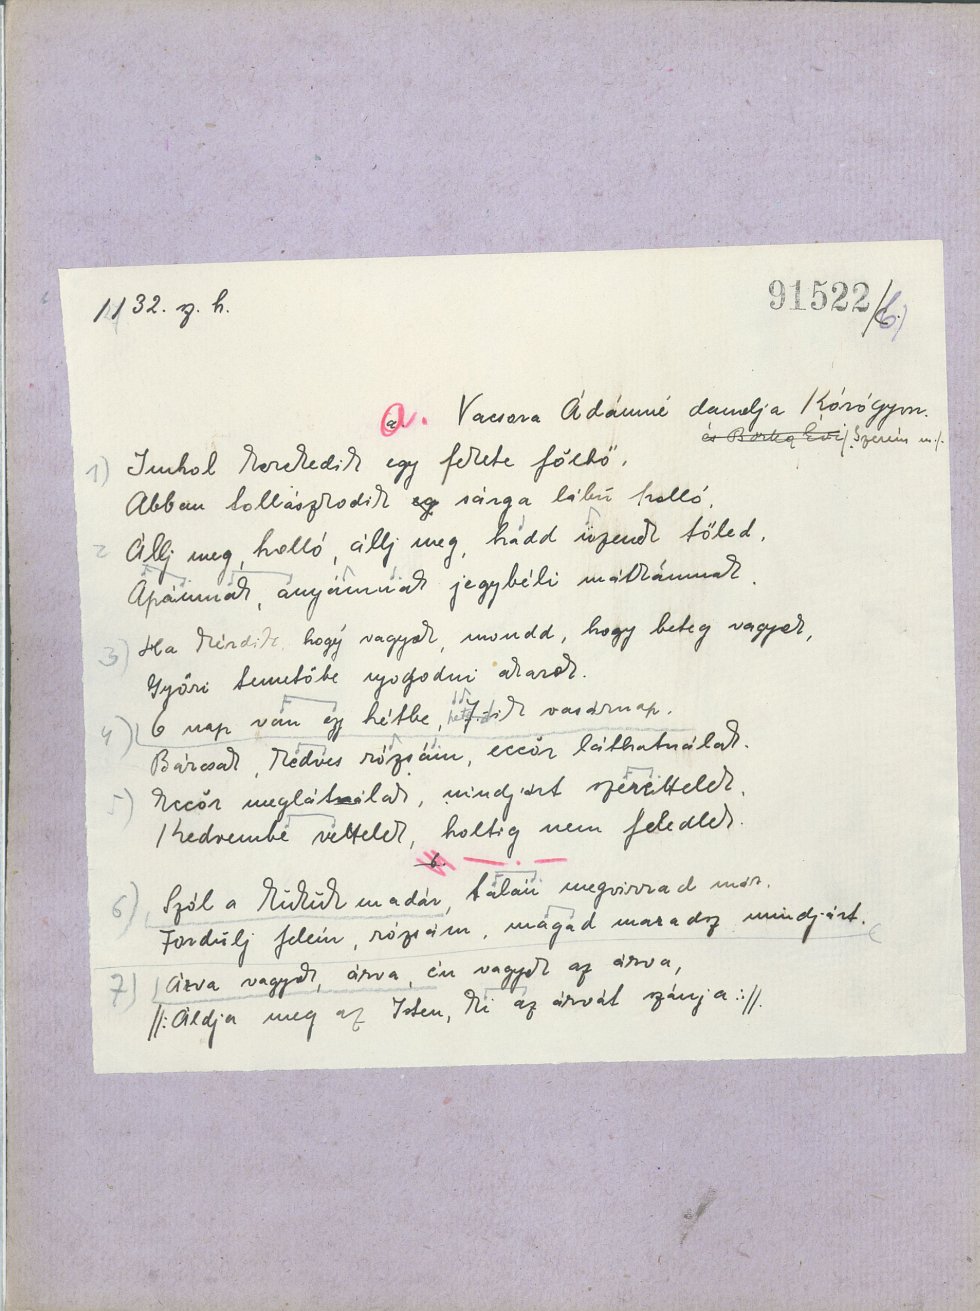 1132. sz. h.
91522/b)
a. Vacsora Ádámné danolja Kórógyon.
és Böske Evi /Szerém m./.
1) Imhol kerekedik egy fekete főlhő,
Abban tollászkodik eg sárga lábú holló.
2 Állj meg, holló, állj meg, hadd üzenek tőled,
Apámnak, anyámnak jegybéli mátkámnak.
3) Ha kérdik, hogy vagyok, mondd, hogy beteg vagyok,
Győri temetőbe nyogodni akarok.
4) 6 nap van egy hétbe, 7-dik vasárnap.
Bárcsak, kedves rózsám, eccőr láthatnálak.
5) Eccőr meglátnálak, mindjárt szeretnélek,
Kedvembe vettelek, holtig nem feledlek.
b.
6) Szól a kukuk madár, talán megvirrad már.
Fordulj felém, rózsám, magad maradsz mindjárt.
7) Árva vagyok, árva, én vagyok az árva,
//: Áldja meg az Isten, ki az árvát szánja ://.